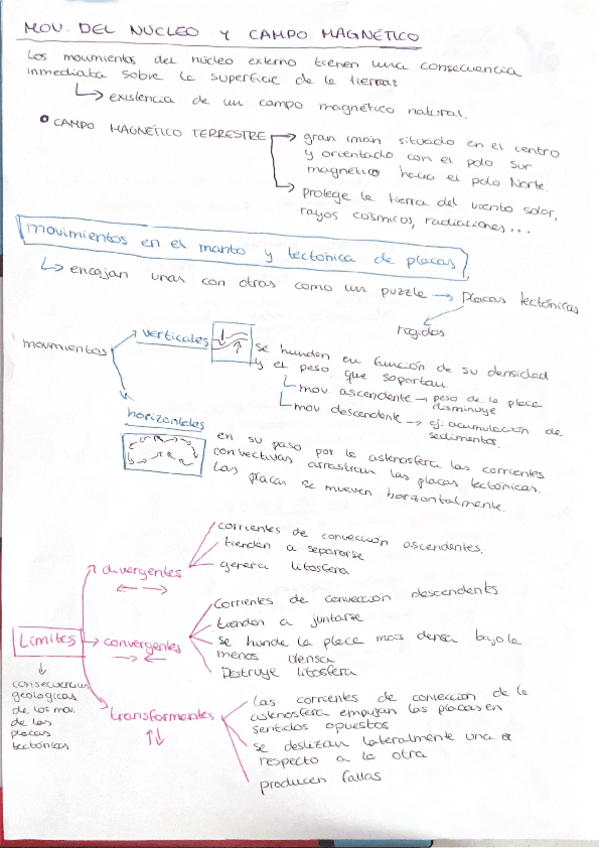 MOV. DEL NUCLEO Y CAMPO MAGNÉTICO
Los movimientos del núcleo externo tienen una consecuencia
inmediata sobre la superficie de la tierra:
↳ existencia de un campo magnético natural.
• CAMPO MAGNÉTICO TERRESTRE → gran imán situado en el centro
y orientado con el polo sur
magnético hacia el polo Norte.
→ protege la tierra del viento solar,
rayos cósmicos, radiaciones...
movimientos en el manto y tectónica de placas
↳ encajan unas con otras como un puzzle → Placas tectónicas
rígidas
movimientos
verticales
se hunden en función de su densidad
y el peso que soportan.
mov ascendente → peso de la placa
disminuye
mov descendente → ej: acumulación de
sedimentos.
horizontales
en su paso por la astenosfera las corrientes
convectivas arrastran las placas tectónicas.
Las placas se mueven horizontalmente.
Límites
consecuencias
geológicas
de los mov.
de las
placas
tectónicas
divergentes
← →
corrientes de convección ascendentes.
tienden a separarse
genera litosfera
convergentes
→ ←
corrientes de convección descendents
tienden a juntarse
se hunde la placa más densa bajo la
menos densa
Destruye litosfera
transformantes
↑↓
Las corrientes de convección de la
astenosfera empujan las placas en
sentidos opuestos
se deslizan lateralmente una
respecto a la otra
producen fallas